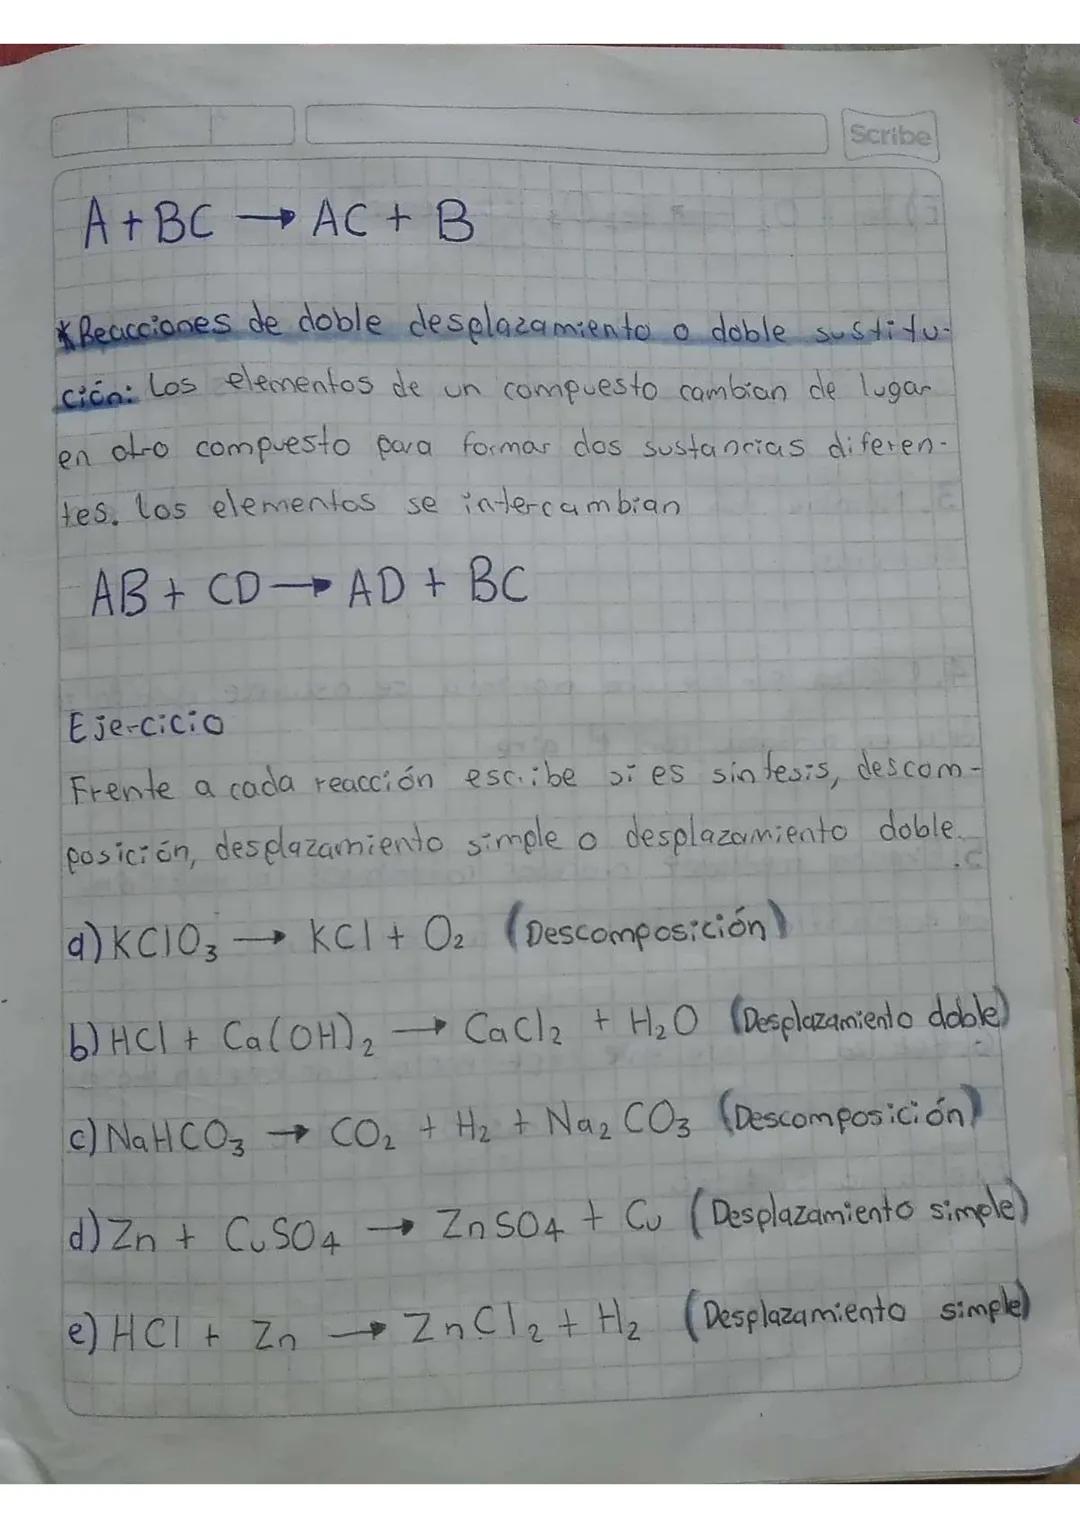 Scribe
A + BC → AC + B
*Reacciones de doble desplazamiento o doble sustitu-
ción: Los elementos de un compuesto cambian de lugar
en otro compuesto para formar dos sustancias diferen-
tes. Los elementos se intercambian
AB + CD → AD + BC
Ejercicio
Frente a cada reacción escribe si es síntesis, descom-
posición, desplazamiento simple o desplazamiento doble.
a) KClO₃ → KCl + O₂ (Descomposición)
b) HCl + Ca(OH)₂ → CaCl₂ + H₂O (Desplazamiento doble)
c) NaHCO₃ → CO₂ + H₂ + Na₂CO₃ (Descomposición)
d) Zn + CuSO₄ → ZnSO₄ + Cu (Desplazamiento simple)
e) HCl + Zn → ZnCl₂ + H₂ (Desplazamiento simple)